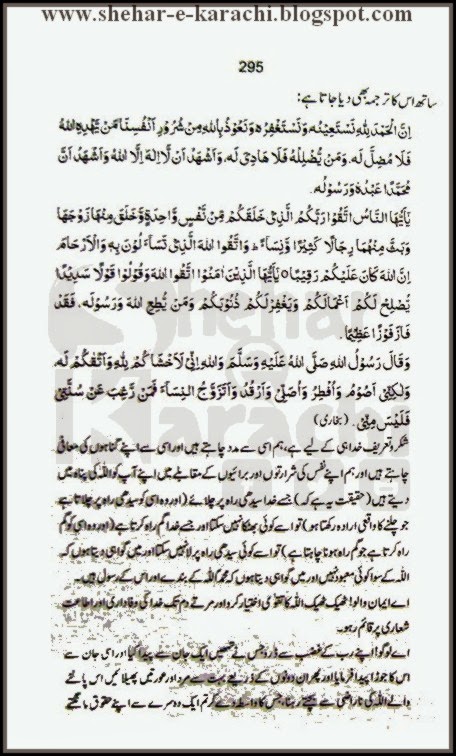 www.shehar-e-karachi.blogspot.com
295
ساتھ اس کا ترجمہ بھی دیا جاتا ہے:
اِنَّ الْحَمْدَ لِلّٰهِ نَسْتَعِيْنُه وَنَسْتَغْفِرُه وَنَعُوْذُ بِاللهِ مِنْ شُرُوْرِ اَنْفُسِنَا مَنْ يَّهْدِهِ اللهُ
فَلَا مُضِلَّ لَه، وَمَنْ يُّضْلِلْهُ فَلَا هَادِيَ لَه، وَاَشْهَدُ اَنْ لَّا اِلٰهَ اِلَّا اللهُ وَاَشْهَدُ اَنَّ
مُحَمَّدًا عَبْدُه وَرَسُوْلُه.
يٰاَيُّهَا النَّاسُ اتَّقُوْا رَبَّكُمُ الَّذِيْ خَلَقَكُمْ مِّنْ نَّفْسٍ وَّاحِدَةٍ وَّخَلَقَ مِنْهَا زَوْجَهَا
وَبَثَّ مِنْهُمَا رِجَالًا كَثِيْرًا وَّنِسَآءً ج وَاتَّقُوا اللهَ الَّذِيْ تَسَآءَلُوْنَ بِهٖ وَالْاَرْحَامَ
اِنَّ اللهَ كَانَ عَلَيْكُمْ رَقِيْبًا ٥ يٰاَيُّهَا الَّذِيْنَ اٰمَنُوْا اتَّقُوا اللهَ وَقُوْلُوْا قَوْلًا سَدِيْدًا
يُّصْلِحْ لَكُمْ اَعْمَالَكُمْ وَيَغْفِرْلَكُمْ ذُنُوْبَكُمْ وَمَنْ يُّطِعِ اللهَ وَرَسُوْلَه، فَقَدْ
فَازَ فَوْزًا عَظِيْمًا.
وَقَالَ رَسُوْلُ اللهِ صَلَّى اللهُ عَلَيْهِ وَسَلَّمَ وَاللهِ اِنِّيْ لَاَخْشَاكُمْ لِلّٰهِ وَاَتْقٰكُمْ لَه،
وَلٰكِنِّيْ اَصُوْمُ وَاُفْطِرُ وَاُصَلِّيْ وَاَرْقُدُ وَاَتَزَوَّجُ النِّسَآءَ فَمَنْ رَغِبَ عَنْ سُنَّتِيْ
فَلَيْسَ مِنِّيْ. (بخاری)
شکر و تعریف خدا ہی کے لیے ہے، ہم اسی سے مدد چاہتے ہیں اور اسی سے اپنے گناہوں کی معافی
چاہتے ہیں اور ہم اپنے نفس کی شرارتوں اور برائیوں کے مقابلے میں اپنے آپ کو اللہ کی پناہ میں
دیتے ہیں (حقیقت یہ ہے کہ) جسے خدا سیدھی راہ پر چلائے (اور وہ اسی کو سیدھی راہ پر چلاتا ہے
جو چلنے کا واقعی ارادہ رکھتا ہو) تو اسے کوئی بھٹکا نہیں سکتا اور جسے خدا گم راہ کرتا ہے (اور وہ اسی کو گم
راہ کرتا ہے جو گم راہ ہونا چاہتا ہے) تو اسے کوئی سیدھی راہ پر لا نہیں سکتا اور میں گواہی دیتا ہوں کہ
اللہ کے سوا کوئی معبود نہیں اور میں گواہی دیتا ہوں کہ محمدؐ اللہ کے بندے اور اس کے رسول ہیں۔
اے ایمان والو! ٹھیک ٹھیک اللہ کا تقویٰ اختیار کرو اور مرتے دم تک خدا کی وفاداری اور اطاعت
شعاری پر قائم رہو۔
اے لوگو! اپنے رب کے غضب سے ڈرو جس نے تمہیں ایک جان سے پیدا کیا اور اسی جان سے
اس کا جوڑا پیدا فرمایا اور پھر ان دونوں کے ذریعے بہت سے مرد اور عورتیں پھیلائیں اس پالنے
والے اللہ کی ناراضی سے بچتے رہنا، جس کا واسطہ دے کر تم ایک دوسرے سے اپنے حقوق مانگتے
Shehar
e
Karachi